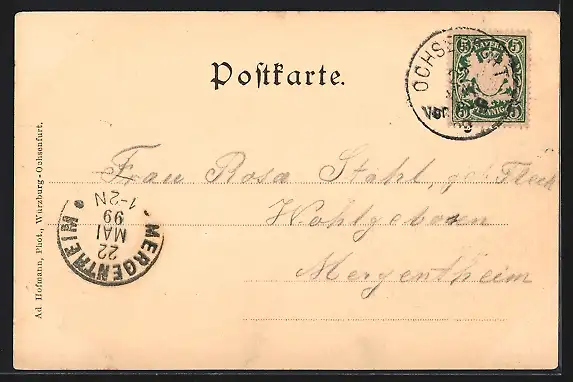 Postkarte.
BAYERN
5 5
PFENNIG
5 5
Vor
Frau Rosa Stahl, geb Fleck
Wohlgeboren
Mergentheim
MERGENTHEIM
22
MAI
99
1-2N
Ad Hofmann, Phot., Würzburg-Ochsenfurt.